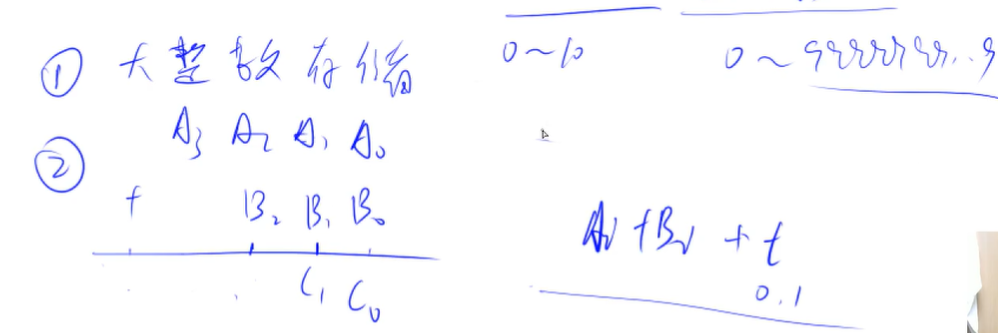 ① 大整数存储
0~10
0~99999999...9
② A₃ A₂ A₁ A₀
+ B₂ B₁ B₀
C₁ C₀
Aᵢ+Bᵢ+t
0.1